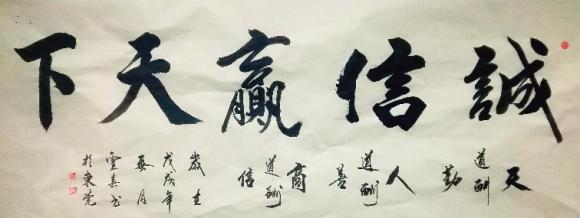 誠信贏天下
天道酬勤
人道酬善
商道酬信
歲在
戊戌年
夏月
书
於東莞